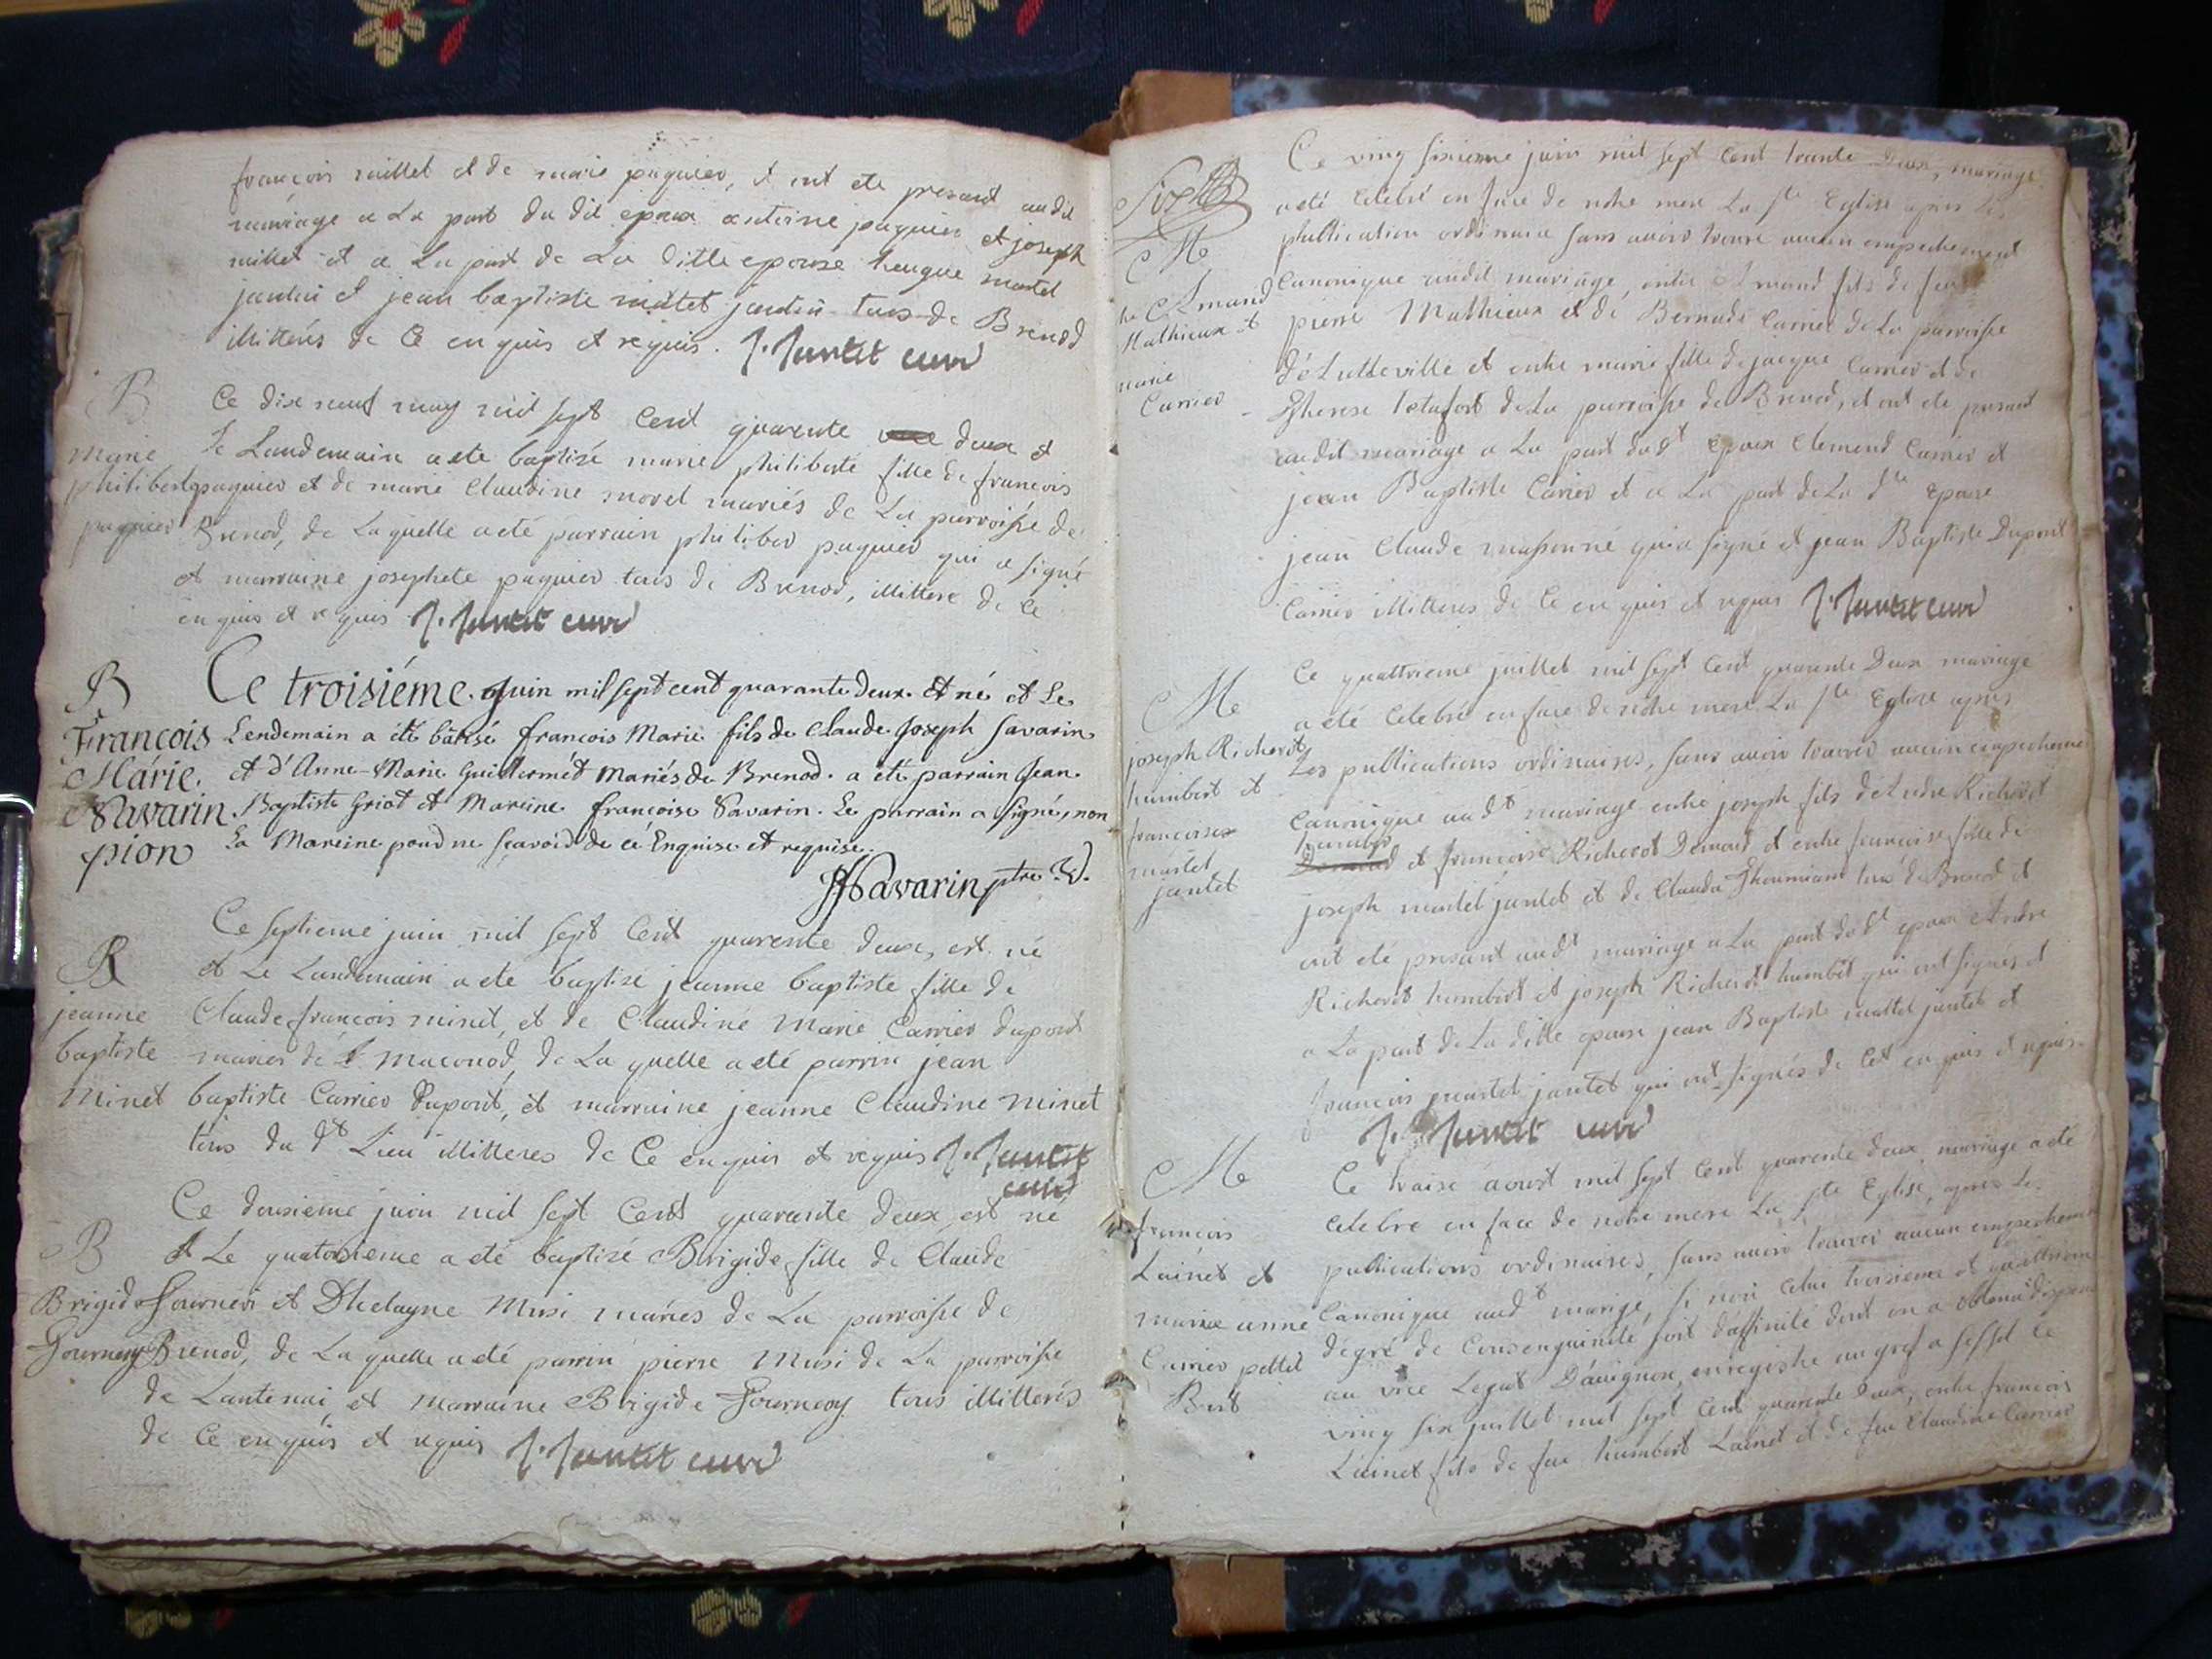 françois millet et de marie paguier, et ont ete presant audit
mariage a La part du dit epoux antoine paguier et joseph
millet et a La part de La ditte epouse hugue martel
jantet et jean baptiste martet jantet tous de Brenod
illitterés de Ce enquis et requis. J. Jantet curé
B
Marie
philiberte
paguier
Ce dix neuf may mil sept Cent quarente deux et
Le Landemain a ete baptisé marie philiberte fille de francois
paguier et de marie Claudine morel mariés de La parroisse de
Brenod, de Laquelle a eté parrain philiber paguier qui a signé
et marraine josephete paguier tous de Brenod, illittere de Ce
enquis et requis J. Jantet curé
B
François
Marie
Savarin
pion
Ce troisiéme Juin mil sept cent quarante deux Et né et Le
Lendemain a été batisé francois Marie fils de Claude Joseph Savarin
et d'Anne-Marie Guillermét Mariés de Brenod. a été parrain Jean
Baptiste Griot et Mareine francoise Savarin. Le parrain a signé, non
La Mareine pour ne sçavoir de cé Enquise et requise.
Savarin ptre V.
B
jeanne
baptiste
Minet
Ce septieme juin mil sept Cent quarente deux, est né
et Le Landemain a ete baptisé jeanne baptiste fille de
Claude francois minet, et de Claudine Marie Carrier dupont
mariés de Maconod, de La quelle a eté parrin jean
baptiste Carrier Dupont, et marraine jeanne Claudine minet
tous du dt Lieu illitteres de Ce enquis et requis J. Jantet
curé
B
Brigide
Gournery
Ce dousieme juin mil sept Cent quarante deux est né
et Le quatorsieme a eté baptisé Brigide fille de Claude
et Musi mariés de La parroisse de
Brenod, de La quelle a eté parrin pierre Musi de La parroisse
de Lantenai et Marraine Brigide tous illitterés
de Ce enquis et requis J. Jantet curé
M
Mathieux et
marie
Carrier
Ce ving sixieme juin mil sept Cent trante Deux, mariage
a eté Celebré en face de notre mere La Ste Eglise apres Les
publication ordinaire sans avoir trouvé aucun empechement
Canonique audit mariage, entre fils de feu
pierre Mathieux et de Bernade Carrier de La parroisse
et entre marie fille de jacque Carrier et de
Therese de La parroisse de Brenod, et ont ete presant
audit mariage a La part dudt epoux Clement Carrier et
jean Baptiste Carrier et a La part de La dte epouse
jean Claude massonné qui a signé et jean Baptiste Dupont
Carrier illitterés de Ce enquis et requis J. Jantet curé
M
joseph Richerot
humbert et
francoise
martel
jantet
Ce quattrieme juillet mil sept Cent quarente Deux mariage
a eté Celebré en face de notre mere La Ste Eglise apres
Les publications ordinaires, sans avoir trouvés aucun empecheme
Canonique audt mariage entre joseph fils Richerot
humber
et françoise Richerot et entre francoise fille de
joseph martel jantet et de Claudia de Brenod et
ont eté presant audt mariage a La part dudt epoux Andre
Richerot humbert et joseph Richerot humbert qui ont signés et
a La part de La ditte epouse jean Baptiste martel jantet et
francois martel jantet qui ont signés de Cet enquis et requis
J. Jantet curé
M
francois
Lainet et
marie anne
Carrier pettet
Bert
Ce traise aoust mil sept Cent quarente deux mariage a eté
Celebre en face de notre mere La Ste Eglise, apres Les
publications ordinaires, sans avoir trouvés aucun empechement
Canonique audt marige, si non Celui troisieme et quattrieme
dégré de Consenguinité soit d'affinité dont on a obtenu dispense
au vice Legat D'avignon, enregistré au gref a
ving six juillet mil sept Cent quarente Deux, entre francois
Lainet fils de feu humbert Lainet et de feu Claudine Carrier